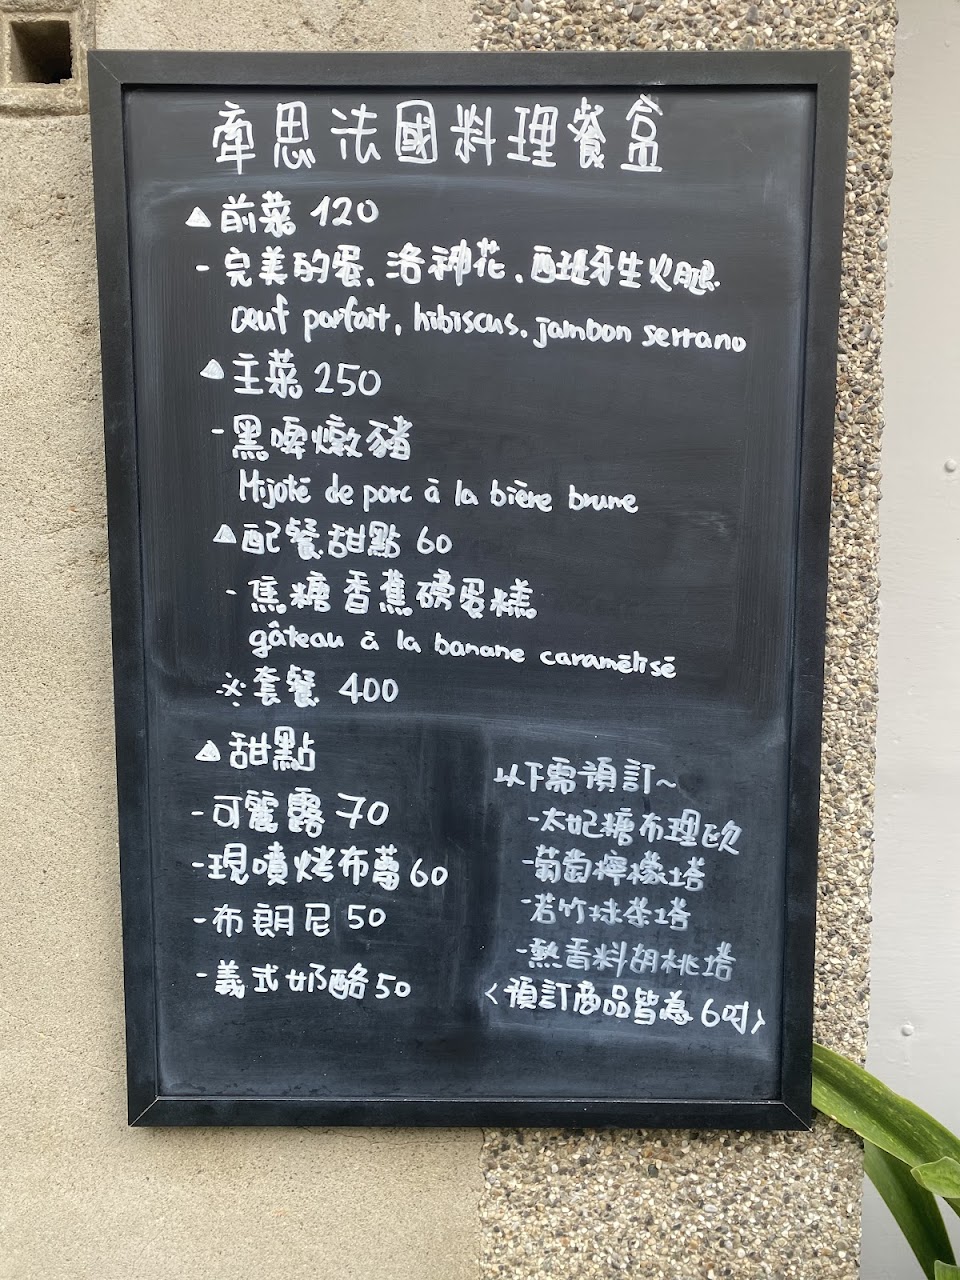 牽思法國料理餐盒
▲前菜 120
-完美的蛋、洛神花、西班牙生火腿
oeuf parfait, hibiscus, jambon serrano
▲主菜 250
-黑啤燉豬
Mijoté de porc à la bière brune
▲配餐甜點 60
-焦糖香蕉磅蛋糕
gâteau à la banane caramélisé
※套餐 400
▲甜點
-可麗露 70
-現噴烤布蕾 60
-布朗尼 50
-義式奶酪 50
以下需預訂~
-太妃糖布理歐
-葡萄檸檬塔
-若竹抹茶塔
-熱香料胡桃塔
<預訂商品皆為6吋>